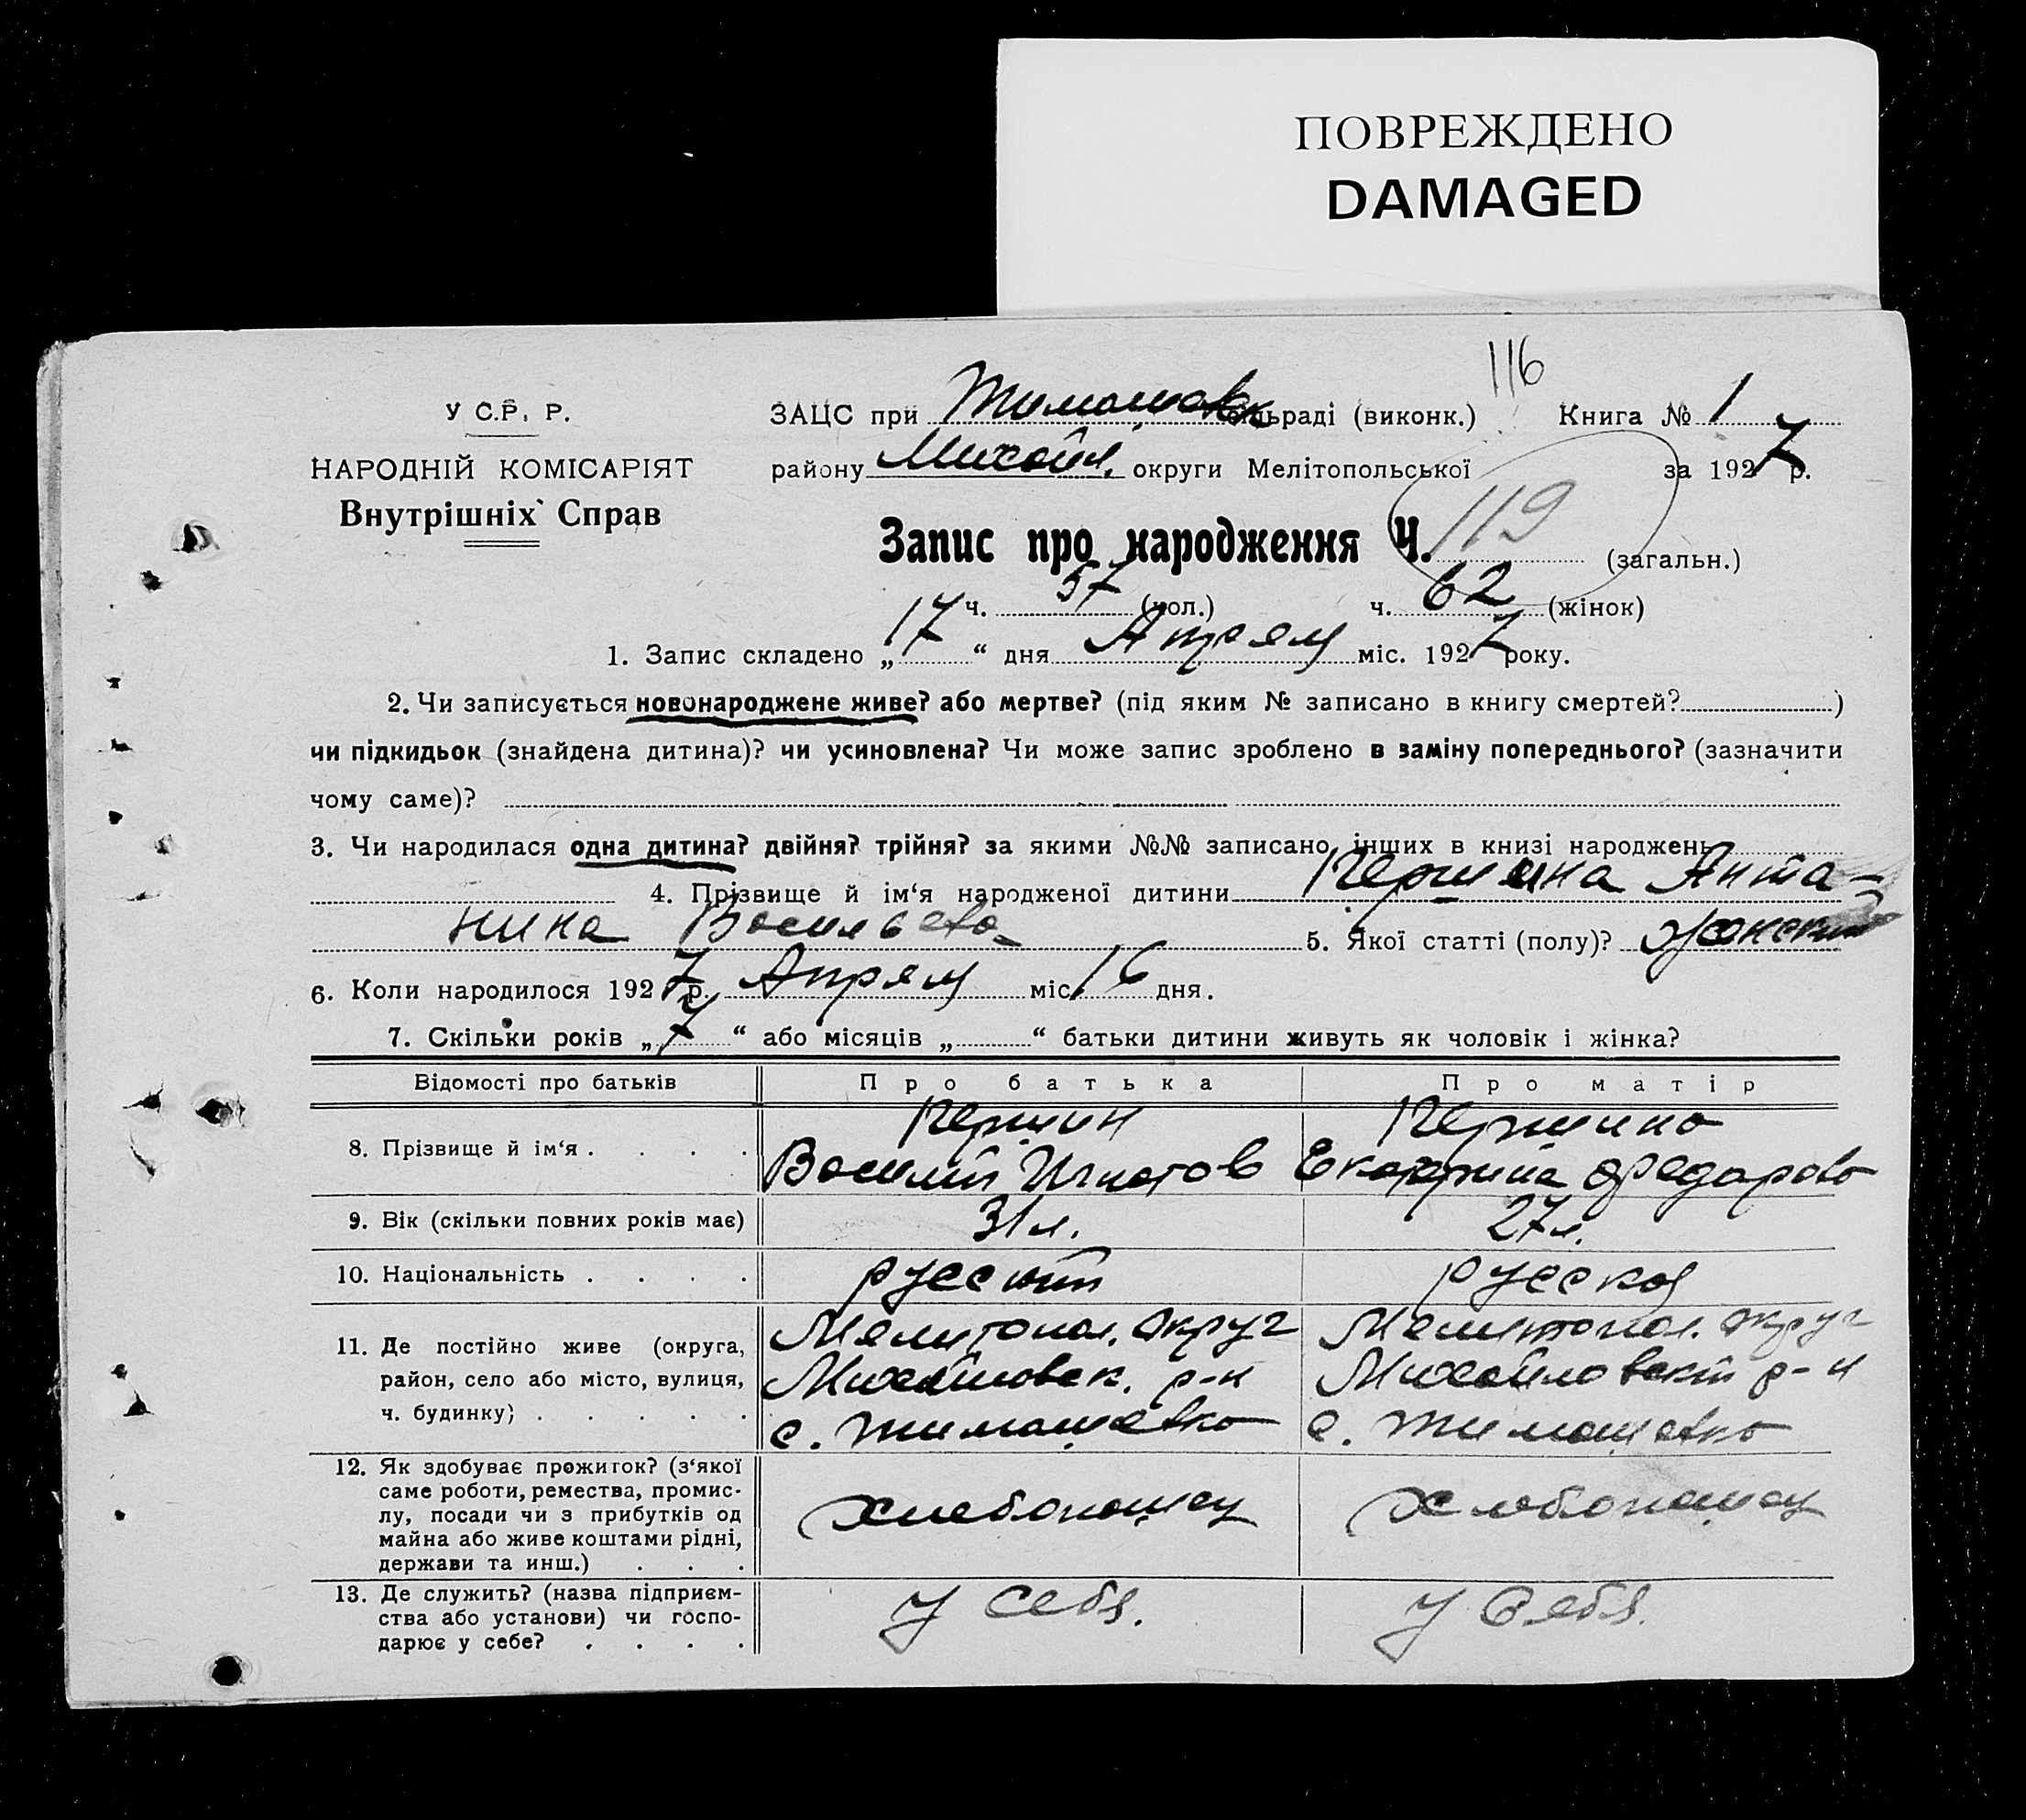 ПОВРЕЖДЕНО
DAMAGED
116
У С.Р. Р.
НАРОДНІЙ КОМІСАРІЯТ
Внутрішніх Справ
ЗАЦС при Тимошовк сільраді (виконк.) Книга № 1
району Михайл. округи Мелітопольської за 1927 р.
Запис про народження Ч. 119 (загальн.)
ч. 57 (чол.) ч. 62 (жінок)
1. Запис складено „17“ дня Апреля міс. 1927 року.
2. Чи записується новонароджене живе? або мертве? (під яким № записано в книгу смертей? )
чи підкидьок (знайдена дитина)? чи усиновлена? Чи може запис зроблено в заміну попереднього? (зазначити
чому саме)?
3. Чи народилася одна дитина? двійня? трійня? за якими №№ записано інших в книзі народжень
4. Прізвище й ім‘я народженої дитини Першина Анта-
нина Васильева 5. Якої статті (полу)? женский
6. Коли народилося 1927 р. Апреля міс. 16 дня.
7. Скільки років „7“ або місяців „ “ батьки дитини живуть як чоловік і жінка?
Відомості про батьків Про батька Про матір
8. Прізвище й ім‘я . . . . Першин Василий Игнатов Першина Екатерина Федарова
9. Вік (скільки повних років має) 31 л. 27 л.
10. Національність . . . . русский русская
11. Де постійно живе (округа, Мелитопол. округ Мелитопол. округ
район, село або місто, вулиця, Михайловск. р-н Михайловский р-н
ч. будинку) . . . . . с. Тимашевка с. Тимашевка
12. Як здобуває прожиток? (з‘якої
саме роботи, ремества, промис-
лу, посади чи з прибутків од
майна або живе коштами рідні,
держави та инш.) . . . хлебопашец хлебопашец
13. Де служить? (назва підприєм-
ства або установи) чи госпо-
дарює у себе? . . . . у себя. у себя.